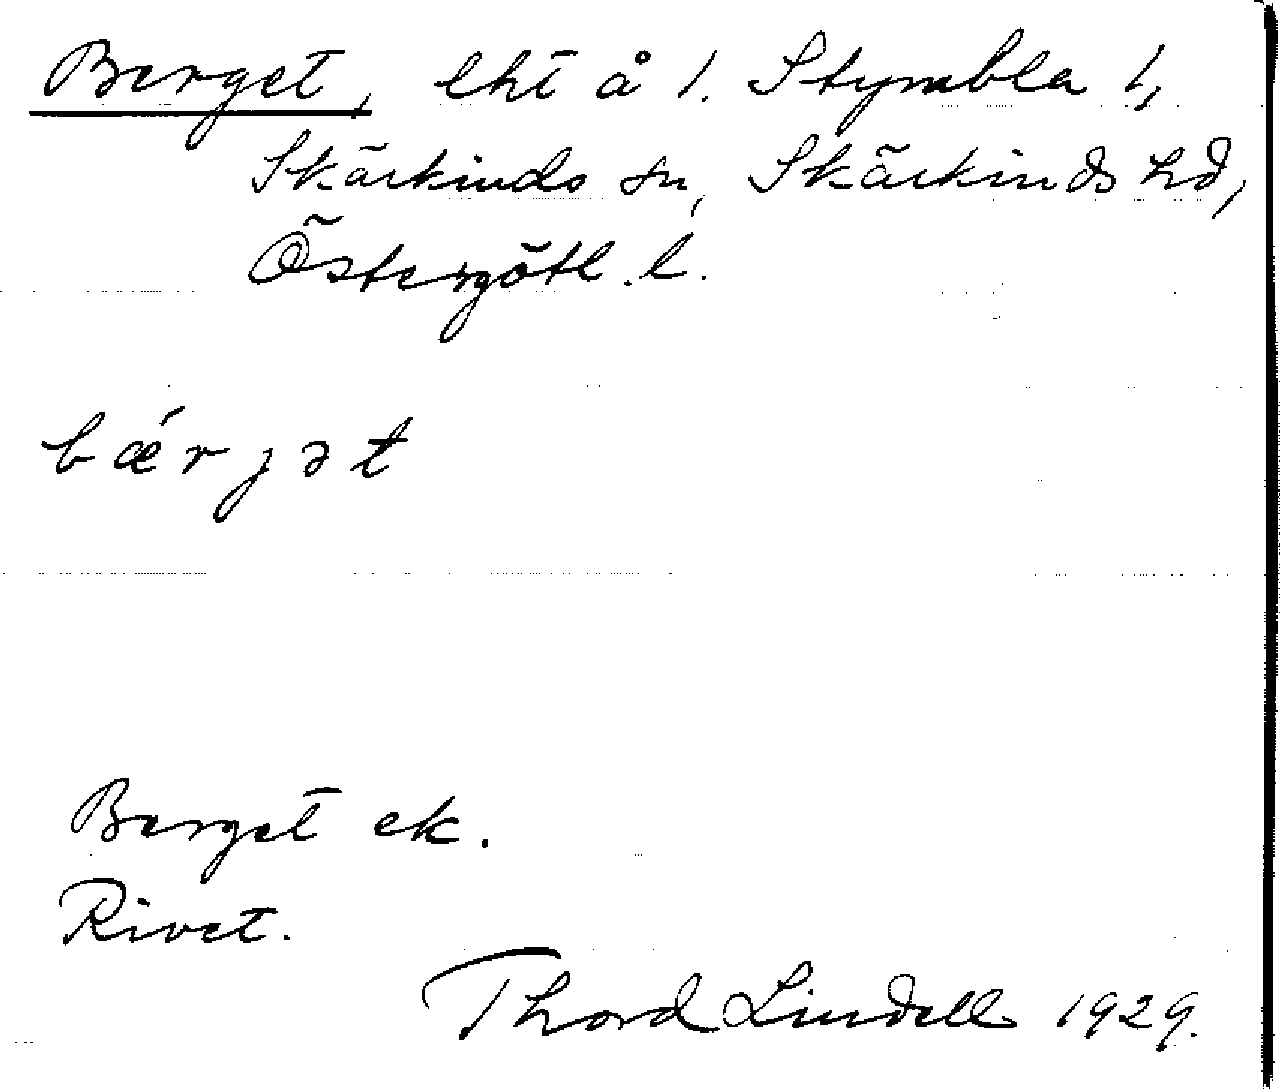 Berget, lht å 1. Stymbla 1,
Skärkinds sn, Skärkinds hd,
Östergötl. l.
bǽrjət
Berget ek.
Rivet.
Thord Lindell 1929.